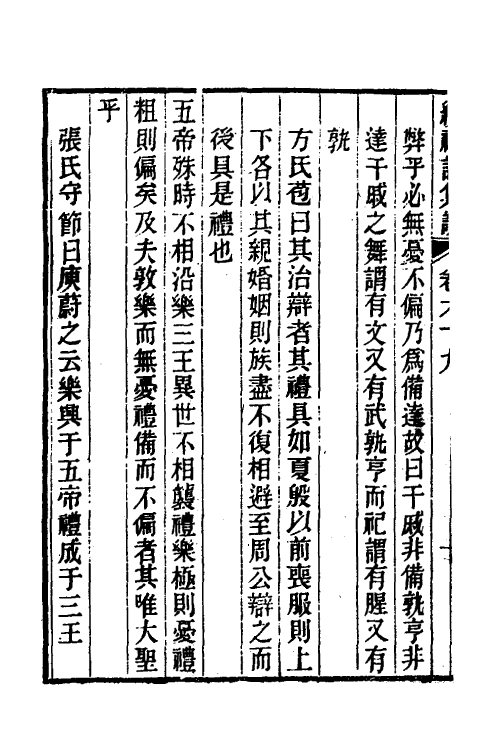 續禮記集說 卷六十九
弊乎必無憂不偏乃爲備達故曰干戚非備孰亨非
達干戚之舞謂有文又有武孰亨而祀謂有腥又有
孰
方氏苞曰其治辯者其禮具如夏殷以前喪服則上
下各以其親婚姻則族盡不復相避至周公辯之而
後具是禮也
五帝殊時不相沿樂三王異世不相襲禮樂極則憂禮
粗則偏矣及夫敦樂而無憂禮備而不偏者其唯大聖
乎
張氏守節曰庾蔚之云樂興于五帝禮成于三王